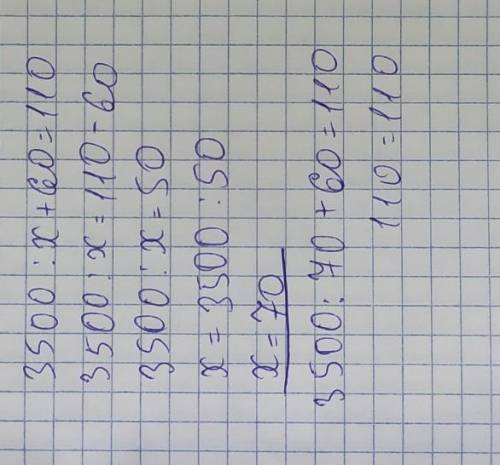 3500 : x + 60 = 110
3500 : x = 110 - 60
3500 : x = 50
x = 3500 : 50
x = 70
3500 : 70 + 60 = 110
110 = 110